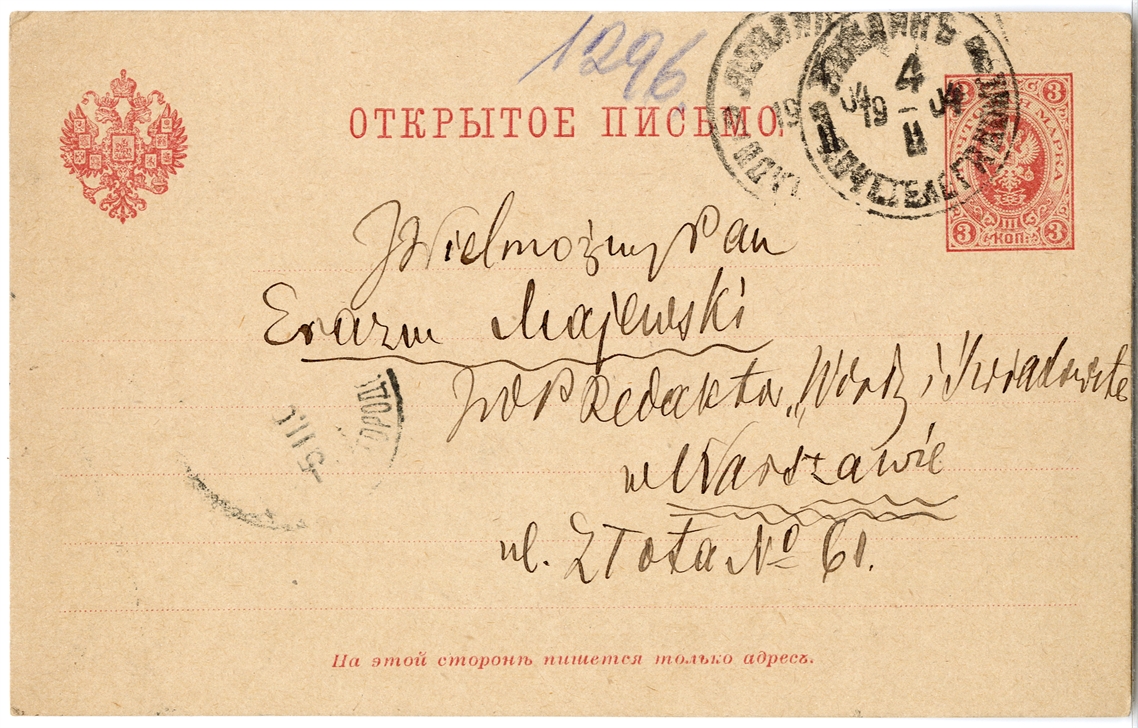 1296.
ОТКРЫТОЕ ПИСЬМО.
ЛЮБЛИНЪ
4
19 - 04
II
3 3
ПОЧТОВАЯ МАРКА
III
3 КОП. 3
JWielmożny Pan
Erazm Majewski
JWP Redaktor „
w Warszawie
5 III
ul. Złota № 61.
На этой сторонѣ пишется только адресъ.